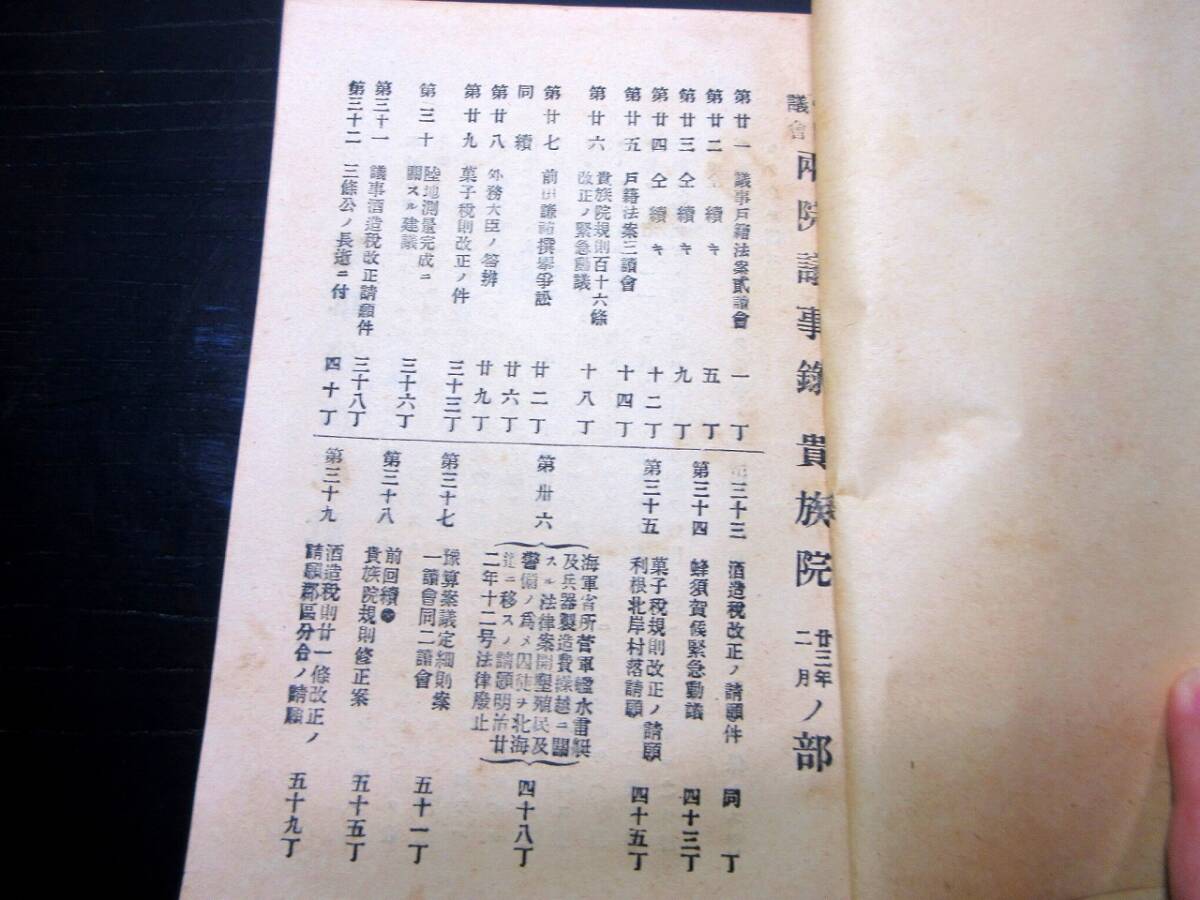 議會 兩院議事錄 貴族院 廿三年二月ノ部
第廿一 議事戸籍法案貳讀會 一丁
第廿二 續キ 五丁
第廿三 仝續キ 九丁
第廿四 仝續キ 十二丁
第廿五 戸籍法案三讀會 十四丁
第廿六 貴族院規則百十六條
改正ノ緊急動議 十八丁
第廿七 前田謙 撰擧爭訟 廿二丁
同續 廿六丁
第廿八 外務大臣ノ答辨 廿九丁
第廿九 菓子税則改正ノ件 三十三丁
第三十 陸地測量完成ニ
關スル建議 三十六丁
第三十一 議事酒造税改正請願件 三十八丁
第三十二 三條公ノ長逝ニ付 四十丁
三十三 酒造税改正ノ請願件 同丁
第三十四 蜂須賀侯緊急動議 四十三丁
第三十五 菓子税規則改正ノ請願
利根北岸村落請願 四十五丁
第卅六 海軍省所菅軍艦水雷艇
及兵器製造費繰越ニ關
スル法律案開墾殖民及
警備ノ爲メ囚徒ヲ北海
道ニ移スノ請願明治廿
二年十二号法律廢止 四十八丁
第三十七 豫算案議定細則案
一讀會同二讀會 五十一丁
第三十八 前回續
貴族院規則修正案 五十五丁
第三十九 酒造税則廿一條改正ノ
請願郡區分合ノ請願 五十九丁